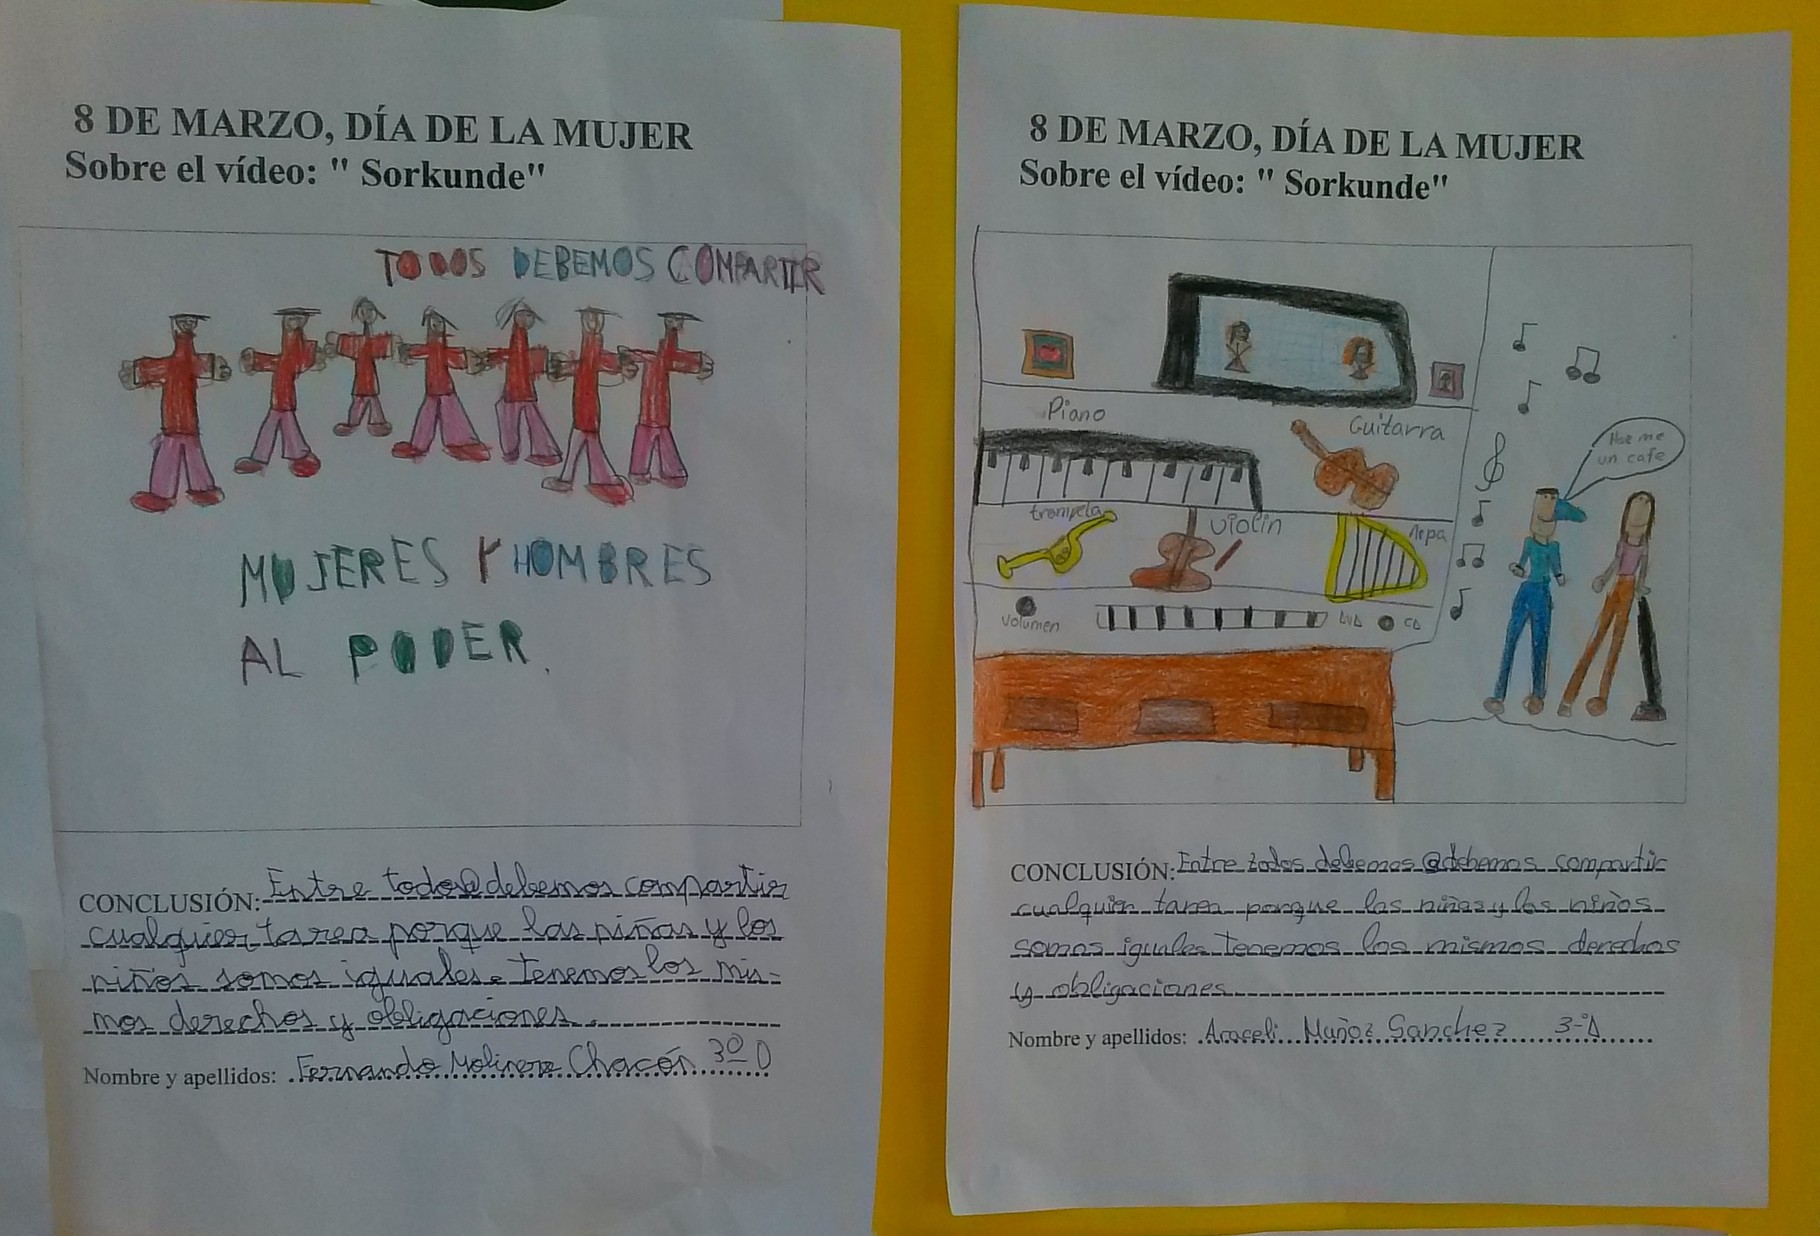 8 DE MARZO, DÍA DE LA MUJER
Sobre el vídeo: " Sorkunde"
TODOS DEBEMOS COMPARTIR
MUJERES Y HOMBRES
AL PODER.
CONCLUSIÓN: Entre todos@debemos compartir
cualquier tarea porque las niñas y los
niños somos iguales. tenemos los mis-
mos derechos y obligaciones.
Nombre y apellidos: Fernando Molinera Chacón 3º D
8 DE MARZO, DÍA DE LA MUJER
Sobre el vídeo: " Sorkunde"
Piano
Guitarra
Haz me
un cafe
trompeta
violin
Arpa
volumen
DVD
CD
CONCLUSIÓN: Entre todos debemos @debemos compartir
cualquier tarea porque las niñas y los niños
somos iguales tenemos los mismos derechos
y obligaciones
Nombre y apellidos: Araceli Muñoz Sanchez 3ºA